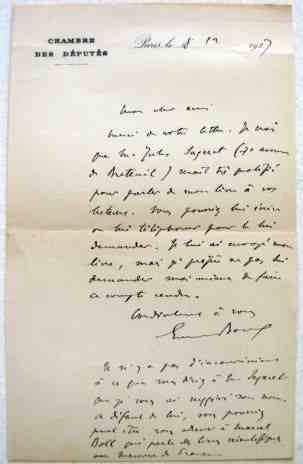 CHAMBRE
DES DÉPUTÉS
Paris, le 8 1927
Mon cher ami
merci de votre lettre. Je crois
que M. Jules Sageret (
de Breteuil) serait très qualifié
pour parler de mon livre à vos
lecteurs. Vous pourriez lui écrire
ou lui téléphoner pour le lui
demander. Je lui ai envoyé mon
livre, mais je préfère ne pas lui
demander moi-même de faire
ce compte rendu.
Cordialement à vous
Emile Borel
Je n'y a pas d'inconvénient
à ce que vous disiez à M. Sageret
que je vous ai suggéré son nom.
A défaut de lui, vous pourriez
peut être vous adresser à Marcel
Boll qui parle des livres scientifiques
au Mercure de France.